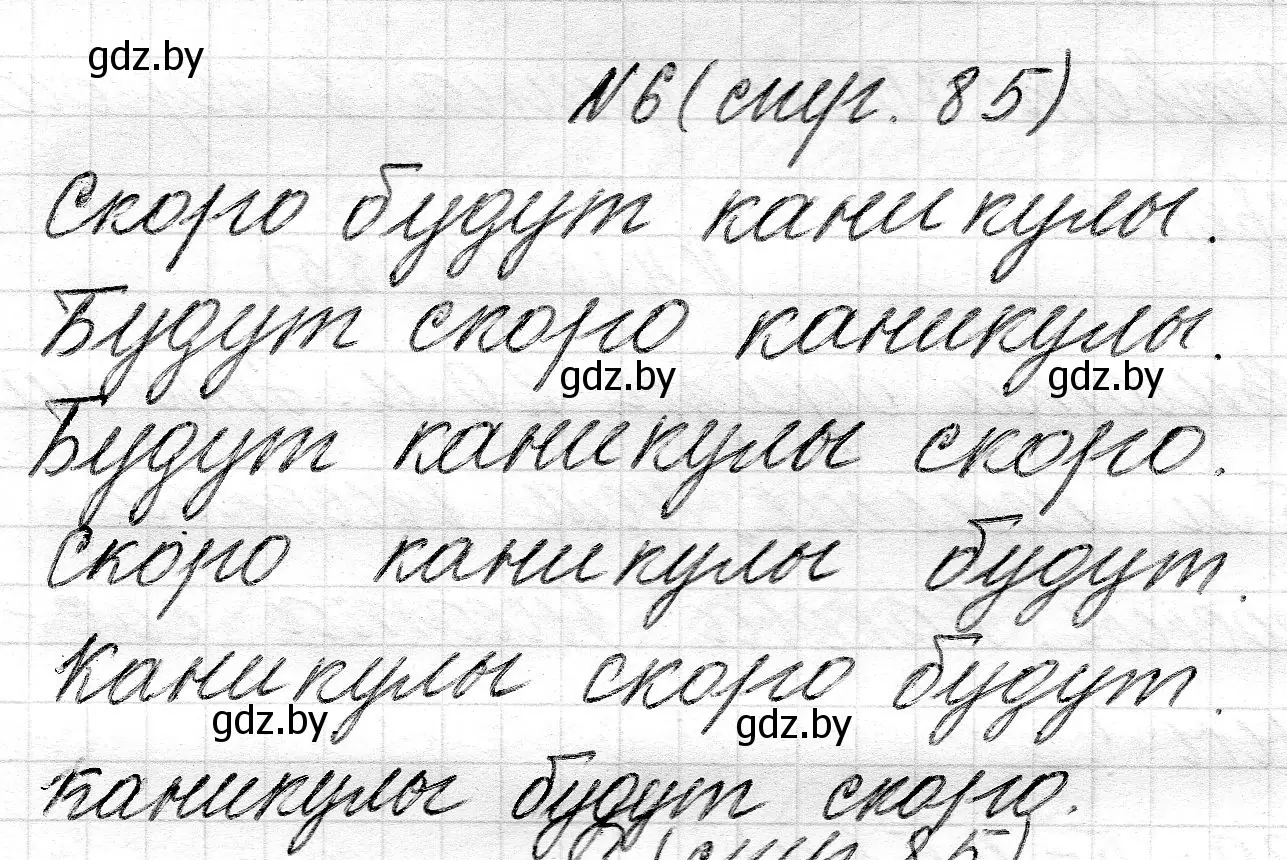 gdz.by
N6 (стр. 85)
Скоро будут каникулы.
Будут скоро каникулы.
gdz.by gdz.by
Будут каникулы скоро.
Скоро каникулы будут.
Каникулы скоро будут.
gdz.by gdz.by
Каникулы будут скоро.
(стр. 85)